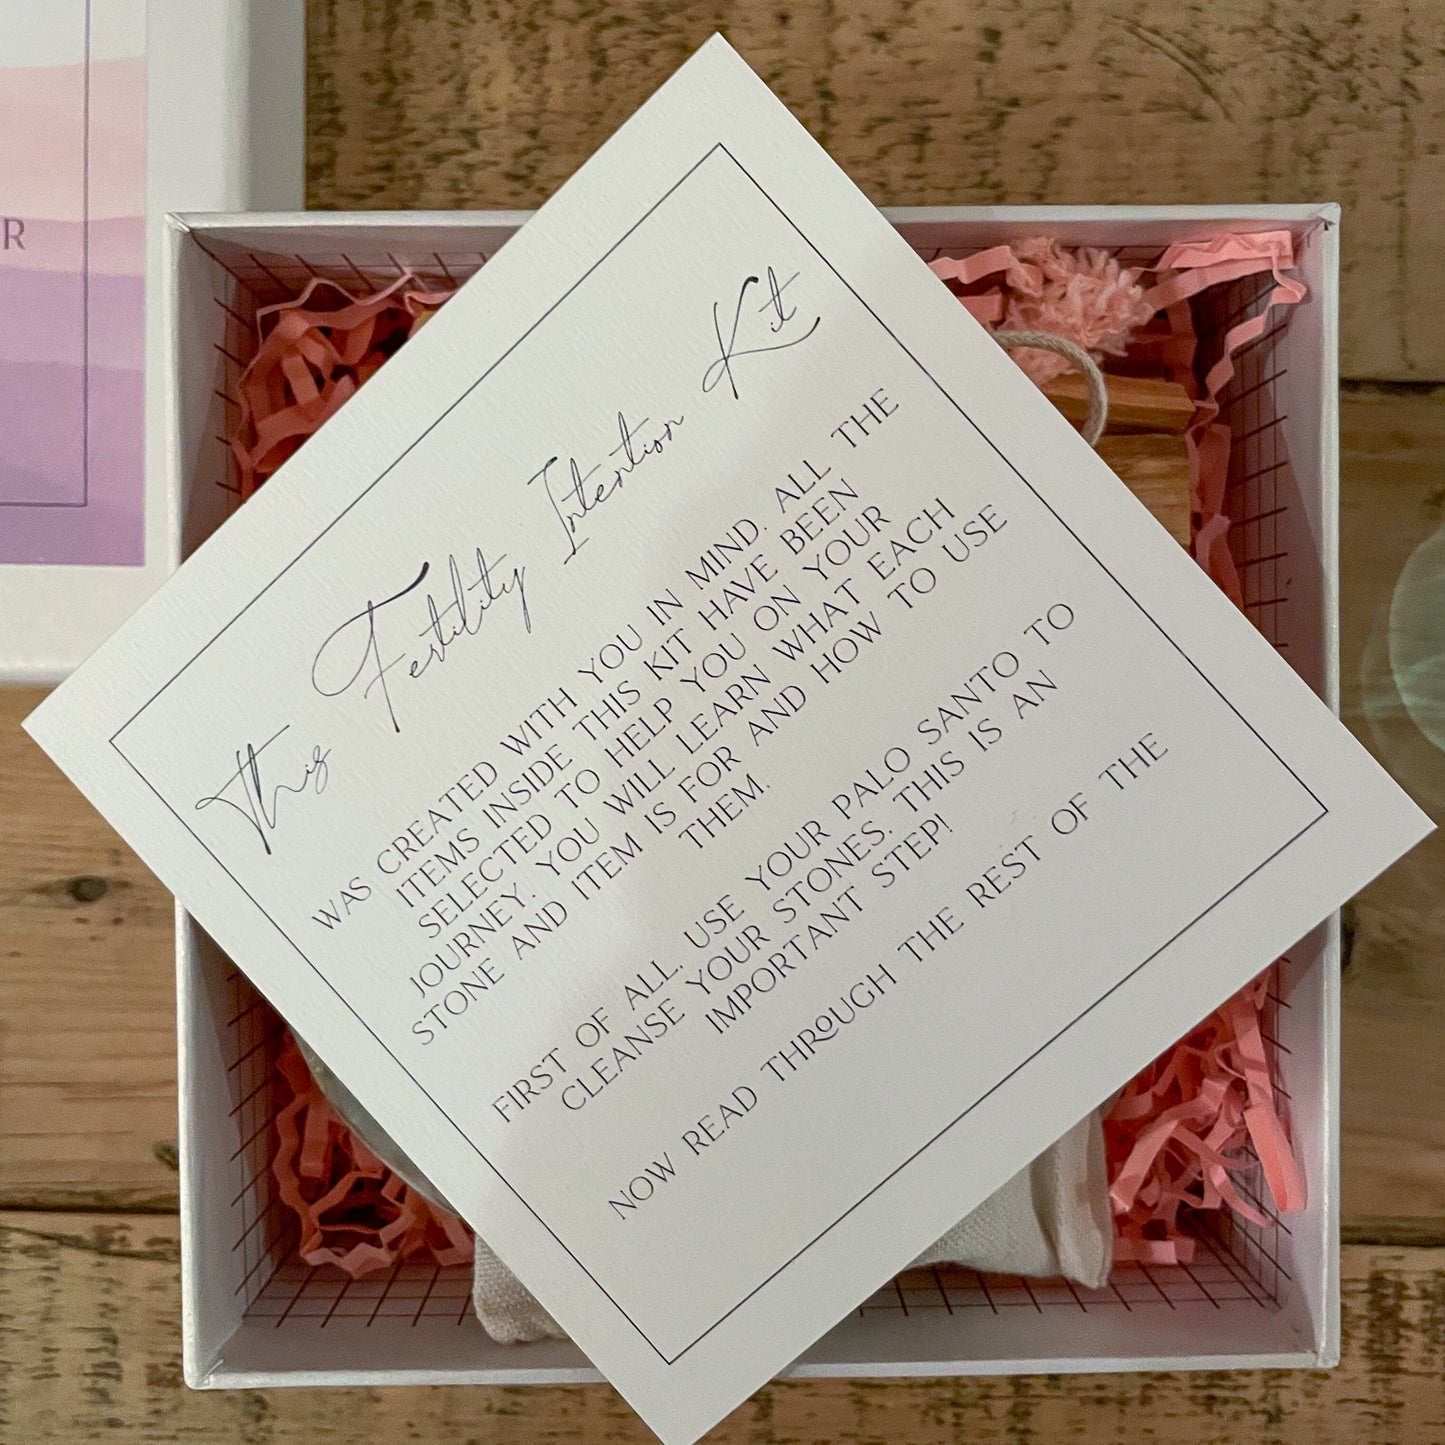 R
This Fertility Intention Kit
WAS CREATED WITH YOU IN MIND. ALL THE
ITEMS INSIDE THIS KIT HAVE BEEN
SELECTED TO HELP YOU ON YOUR
JOURNEY. YOU WILL LEARN WHAT EACH
STONE AND ITEM IS FOR AND HOW TO USE
THEM.
FIRST OF ALL, USE YOUR PALO SANTO TO
CLEANSE YOUR STONES. THIS IS AN
IMPORTANT STEP!
NOW READ THROUGH THE REST OF THE